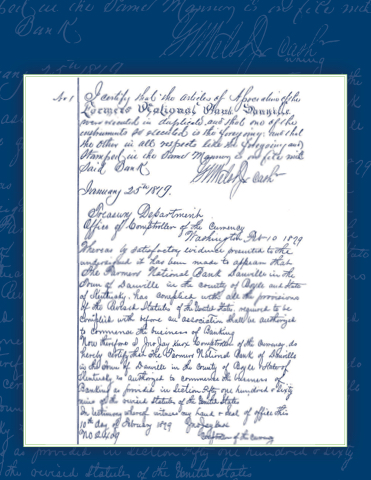 No 1
I certify that the articles of Association of the
Farmers National Bank Danville
were executed in duplicate and that one of the
instruments so executed is the foregoing; and that
the other in all respects like the foregoing and
Stamped in the Same Manner is on file with
Said Bank
Cashr
January 25th 1879.
Treasury Department
Office of Comptroller of the Currency
Washington Feb 10 1879
Whereas by satisfactory evidence presented to the
undersigned it has been made to appear that
The Farmers National Bank Danville in the
Town of Danville in the County of Boyle and State
of Kentucky, has complied with all the provisions
of the Revised Statutes of the United States, required to be
complied with before an association shall be authorized
to commence the business of Banking
Now therefore I Jno Jay Knox Comptroller of the Currency, do
hereby certify that The Farmers National Bank of Danville
in the Town of Danville in the County of Boyle State of
Kentucky is authorized to commence the business of
Banking as provided in section Fifty one hundred & sixty
nine of the revised statutes of the United States
In testimony whereof witness my hand & seal of office this
10th day of February 1879 Jno Jay Knox
No 2409 Comptroller of the Currency